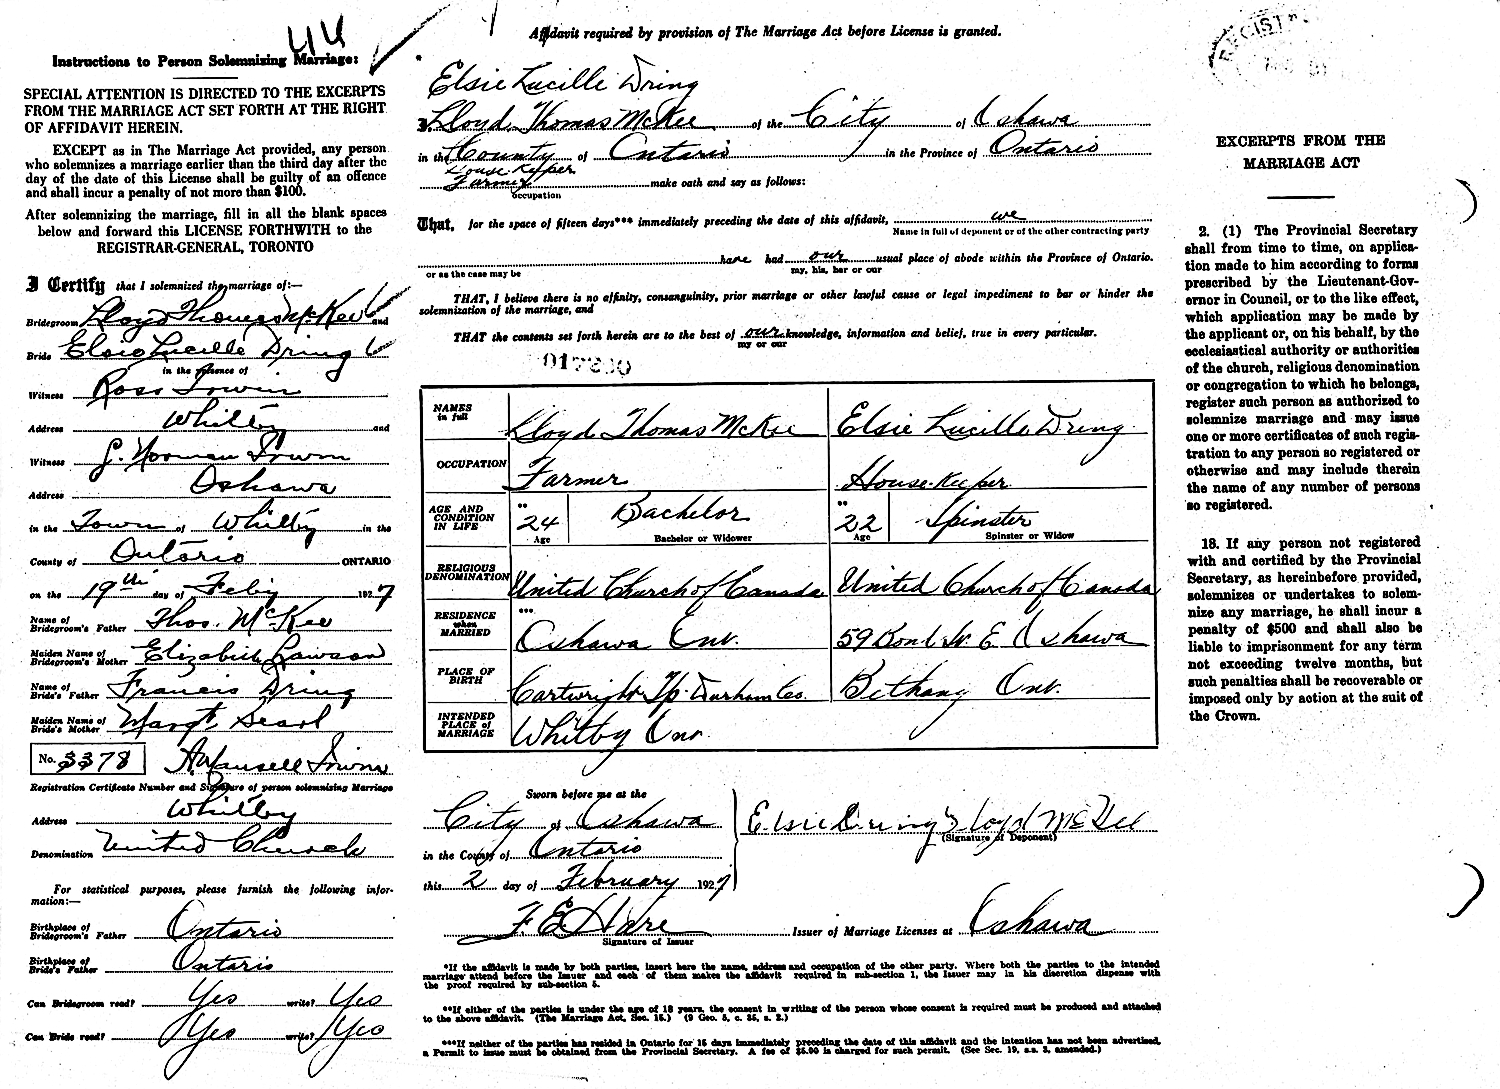 44
Instructions to Person Solemnizing Marriage:
SPECIAL ATTENTION IS DIRECTED TO THE EXCERPTS
FROM THE MARRIAGE ACT SET FORTH AT THE RIGHT
OF AFFIDAVIT HEREIN.
EXCEPT as in The Marriage Act provided, any person
who solemnizes a marriage earlier than the third day after the
day of the date of this License shall be guilty of an offence
and shall incur a penalty of not more than $100.
After solemnizing the marriage, fill in all the blank spaces
below and forward this LICENSE FORTHWITH to the
REGISTRAR-GENERAL, TORONTO
I Certify that I solemnized the marriage of:—
Bridegroom Lloyd Thomas McKee and
Bride Elsie Lucille Dring
in the presence of
Witness Ross Irwin
Address Whitby and
Witness G. Norman Irwin
Address Oshawa
in the Town of Whitby in the
County of Ontario ONTARIO
on the 19th day of Feb'y 1927
Name of Bridegroom's Father Thos. McKee
Maiden Name of Bridegroom's Mother Elizabeth Lawson
Name of Bride's Father Francis Dring
Maiden Name of Bride's Mother Margt. Searl
No. 3378 A. Mansell Irwin
Registration Certificate Number and Signature of person solemnizing Marriage
Address Whitby
Denomination United Church
For statistical purposes, please furnish the following infor-
mation:—
Birthplace of Bridegroom's Father Ontario
Birthplace of Bride's Father Ontario
Can Bridegroom read? Yes write? Yes
Can Bride read? Yes write? Yes
Affidavit required by provision of The Marriage Act before License is granted.
Elsie Lucille Dring
I, Lloyd Thomas McKee of the City of Oshawa
in the County of Ontario in the Province of Ontario
House Keeper
Farmer make oath and say as follows:
occupation
That, for the space of fifteen days*** immediately preceding the date of this affidavit, we
Name in full of deponent or of the other contracting party
have had our usual place of abode within the Province of Ontario.
or as the case may be my, his, her or our
THAT, I believe there is no affinity, consanguinity, prior marriage or other lawful cause or legal impediment to bar or hinder the
solemnization of the marriage, and
THAT the contents set forth herein are to the best of our knowledge, information and belief, true in every particular.
my or our
NAMES in full Lloyd Thomas McKee Elsie Lucille Dring
OCCUPATION Farmer House-Keeper
AGE AND CONDITION IN LIFE ** 24 Bachelor ** 22 Spinster
Age Bachelor or Widower Age Spinster or Widow
RELIGIOUS DENOMINATION United Church of Canada United Church of Canada
RESIDENCE when MARRIED *** Oshawa Ont. 59 Bond St. E Oshawa
PLACE OF BIRTH Cartwright Tp. Durham Co. Bethany Ont.
INTENDED PLACE of MARRIAGE Whitby Ont.
Sworn before me at the
City of Oshawa
in the County of Ontario
this 2 day of February 1927
Elsie Dring Lloyd McKee
(Signature of Deponent)
F E Hare Issuer of Marriage Licenses at Oshawa
Signature of Issuer
*If the affidavit is made by both parties, insert here the name, address and occupation of the other party. Where both the parties to the intended
marriage attend before the Issuer and each of them makes the affidavit required in sub-section 1, the Issuer may in his discretion dispense with
the proof required by sub-section 5.
**If either of the parties is under the age of 18 years, the consent in writing of the person whose consent is required must be produced and attached
to the above affidavit. (The Marriage Act, Sec. 15.) (9 Geo. 5, c. 35, s. 2.)
***If neither of the parties has resided in Ontario for 15 days immediately preceding the date of this affidavit and the intention has not been advertised,
a Permit to issue must be obtained from the Provincial Secretary. A fee of $5.00 is charged for such permit. (See Sec. 19, s.s. 3, amended.)
EXCERPTS FROM THE
MARRIAGE ACT
2. (1) The Provincial Secretary
shall from time to time, on applica-
tion made to him according to forms
prescribed by the Lieutenant-Gov-
ernor in Council, or to the like effect,
which application may be made by
the applicant or, on his behalf, by the
ecclesiastical authority or authorities
of the church, religious denomination
or congregation to which he belongs,
register such person as authorized to
solemnize marriage and may issue
one or more certificates of such regis-
tration to any person so registered or
otherwise and may include therein
the name of any number of persons
so registered.
18. If any person not registered
with and certified by the Provincial
Secretary, as hereinbefore provided,
solemnizes or undertakes to solem-
nize any marriage, he shall incur a
penalty of $500 and shall also be
liable to imprisonment for any term
not exceeding twelve months, but
such penalties shall be recoverable or
imposed only by action at the suit of
the Crown.